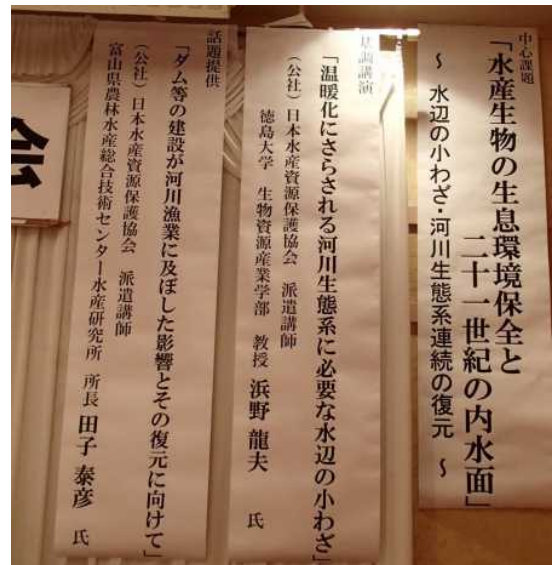 中心課題
「水産生物の生息環境保全と
二十一世紀の内水面」
～ 水辺の小わざ・河川生態系連続の復元 ～
基調講演
「温暖化にさらされる河川生態系に必要な水辺の小わざ」
（公社）日本水産資源保護協会 派遣講師
徳島大学 生物資源産業学部 教授 浜野 龍夫 氏
話題提供
「ダム等の建設が河川漁業に及ぼした影響とその復元に向けて」
（公社）日本水産資源保護協会 派遣講師
富山県農林水産総合技術センター水産研究所 所長 田子 泰彦 氏
会